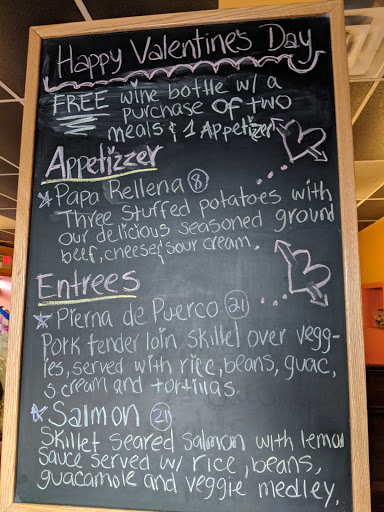 Happy Valentine's Day
FREE wine bottle w/ a
purchase of two
meals & 1 Appetizer
Appetizzer
Papa Rellena 8
Three stuffed potatoes with
our delicious seasoned ground
beef, cheese & sour cream.
Entrees
Pierna de Puerco 21
Pork tender loin skillet over vegg-
ies, served with rice, beans, guac,
s cream and tortillas.
Salmon 21
Skillet seared salmon with lemon
sauce served w/ rice, beans,
guacamole and veggie medley.